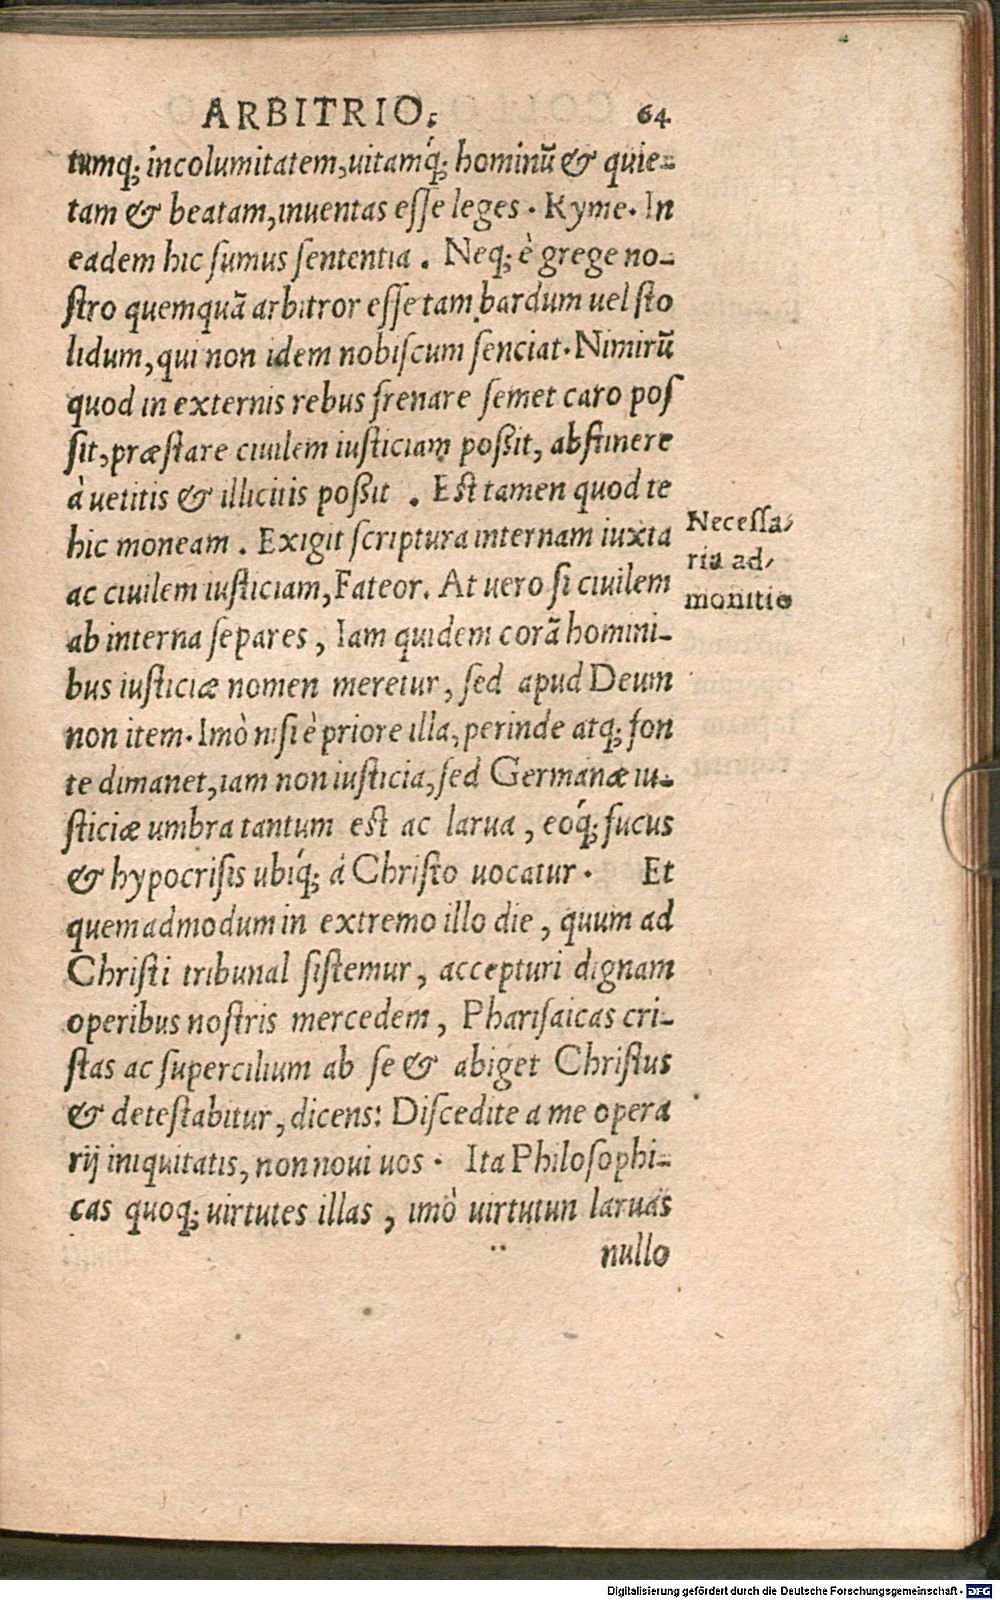 ARBITRIO. 64
tumq; incolumitatem, uitamq́; hominū & quie-
tam & beatam, inuentas esse leges. Kyme. In
eadem hic sumus sententia. Neq; è grege no-
stro quemquā arbitror esse tam bardum uel sto
lidum, qui non idem nobiscum senciat. Nimirū
quod in externis rebus frenare semet caro pos
sit, præstare ciuilem iusticiam poßit, abstinere
à uetitis & illicitis poßit. Est tamen quod te
hic moneam. Exigit scriptura internam iuxta
ac ciuilem iusticiam, Fateor. At uero si ciuilem
ab interna separes, Iam quidem corā homini-
bus iusticiæ nomen meretur, sed apud Deum
non item. Imò nisi è priore illa, perinde atq; fon
te dimanet, iam non iusticia, sed Germanæ iu-
sticiæ umbra tantum est ac larua, eoq́; fucus
& hypocrisis ubiq́; á Christo uocatur. Et
quemadmodum in extremo illo die, quum ad
Christi tribunal sistemur, accepturi dignam
operibus nostris mercedem, Pharisaicas cri-
stas ac supercilium ab se & abiget Christus
& detestabitur, dicens: Discedite a me opera
rij iniquitatis, non noui uos. Ita Philosophi-
cas quoq; uirtutes illas, imò uirtutun laruas
nullo
Necessa-
ria ad-
monitio
Digitalisierung gefördert durch die Deutsche Forschungsgemeinschaft - DFG